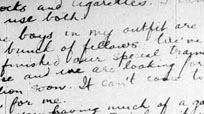 ocks and cigarettes. I can
use both.
e boys in my outfit are
bunch of fellows. We've
finished our special train
se and we are looking for
tion soon. It can't come to
for me.
having much of a ga